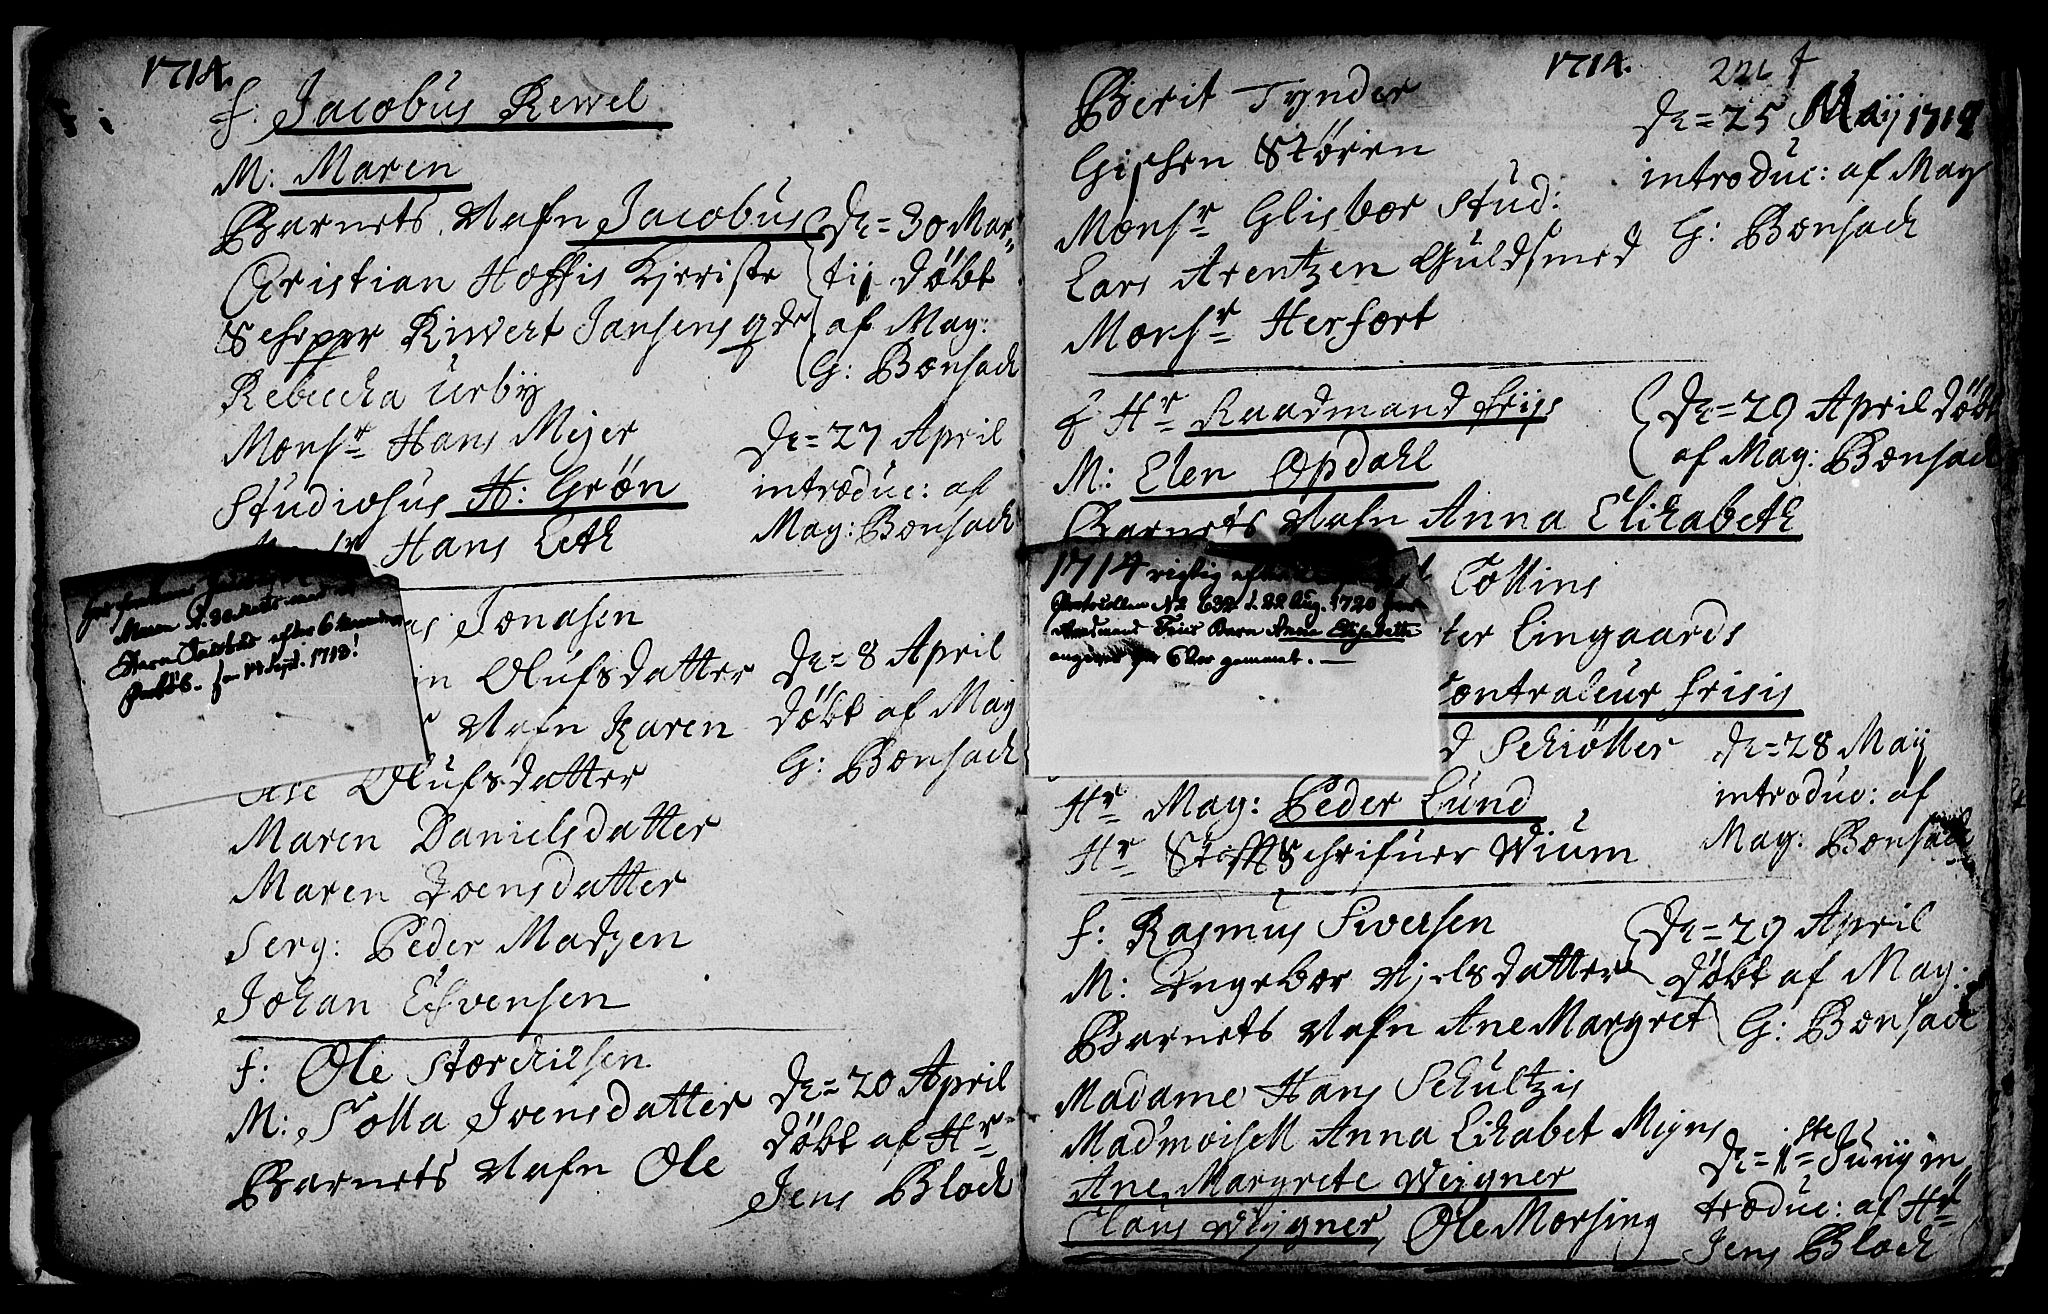 1714.
f: Jacobus Rewel
M: Maren
Barnets Nafn Jacobus
Christian Hoffis Kjeriste
Schipper Riwert Jansens qde
Rebecka Urby
Monsr Hans Mejer
Studiosus H: Grön
Hans Leth
Dn=30 Mar-
tij døbt
af Mag:
G: Bonsach
Dn=27 April
introduc: af
Mag: Bonsach
Maren
Barn Jacobus efter 6
1713!
Jonasen
Olufsdatter
Nafn Karen
Olufsdatter
Maren Danielsdatter
Maren Joensdatter
Serg: Peder Madzen
Johan Evensen
Dn=8 April
døbt af Mag
G: Bonsach
f: Ole Storchilsen
M: Solla Ivensdatter
Barnets Nafn Ole
Dn=20 April
døbt af Hr
Jens Block
1714.
226
Berit Tynder
Gischen Stören
Monsr Glisbor Stud:
Lars Arentzen Guldsmed
Monsr Herfort
Dn=25 Maij 1714
introduc: af Mag
G: Bonsach
f Hr Raadmand friis
M: Elen Opdahl
Barnets Nafn Anna Elisabeth
Collins
ter Lingaards
Contraleur frisis
d Schiöller
Hr Mag: Peder Lund
Hr StifftSchrifuer Wium
Dn=29 April døbt
af Mag: Bonsach
1714 rigtig
Protocollen No 632 d. 22 Aug. 1720 før
Raadmand Friis Barn Anna Elisabetha
angivet før 6 Aar gammel. —
Dn=28 Maij
introduc: af
Mag: Bonsach
f: Rasmus Siversen
M: Ingebor Njelsdatter
Barnets Nafn Ane Margret
Madame Hans Schultzis
Mad'moisell Anna Lisabet Meyns
Ane Margrete Weygner
Claus Weygner, Ole Morsing
Dn=29 April
døbt af Mag.
G: Bonsach
Dn=1ste Junij in
troduc: af Hr
Jens Block